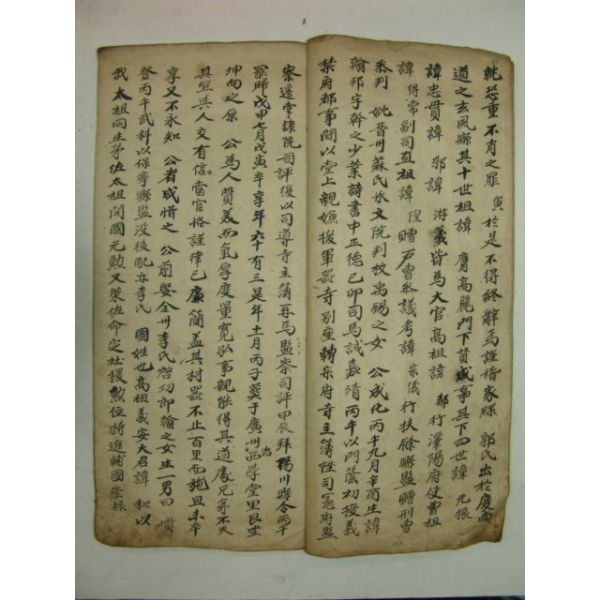 耽恐重不肖之罪 寅於是不得終辭焉謹惟家牒 郭氏出於慶尚
道之玄風縣其十世祖諱 膺高麗門下贊成事其下四世諱 元振
諱忠貫諱 郛諱 游義皆為大官高祖諱 鄰行潭陽府使曾祖
諱 得常副司直祖諱 陞贈户曹參議考諱 宗儀行扶餘縣監贈刑曹
參判 妣晉州蘇氏承文院判校禹錫之女 公成化丙午九月辛酉生諱
翰邦字幹之少業詩書中正德己卯司馬試嘉靖丙午以門蔭初授義
禁府都事間以堂上親嫌援軍器寺別座轉宗府寺主簿陞司憲府監
察遷掌隷院司評復以司導寺主簿再為監察司評甲辰拜楊川縣令丙午
罷歸戊申七月戊寅卒享年六十有三是年十一月丙子葬于廣州治西學堂里艮坐
坤向之原 公為人質美而氣厚度量寬弘事親能得其道處兄弟不失
其宜與人交有信當官恪謹律己廉簡盖其材器不止百里而施且未卒
享又不永知 公者咸惜之 公前娶全州李氏啓功郎翰之女生一男曰 嶸
登丙午武科以保寧縣監没後配亦李氏 國姓也高祖義安大君諱 和以
我 太祖同生弟佐太祖開國元勲又策佐命定社稷勲位特進輔國崇祿